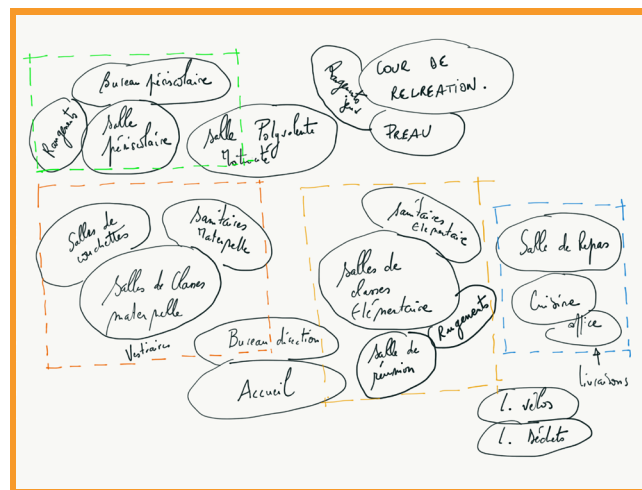 Bureau périscolaire
Rangements
Salle
périscolaire
Salle Polyvalente
Motricité
Rangements
jeux
COUR DE
RECREATION.
PREAU
Salles de
couchettes
Sanitaires
Maternelle
Salles de Classes
maternelle
Vestiaires
Bureau direction
Accueil
Sanitaires
Elementaire
Salles de
classes
Elémentaire
Rangements
Salle de
réunion
Salle de Repas
Cuisine
office
Livraisons
L. Vélos
L. Déchets